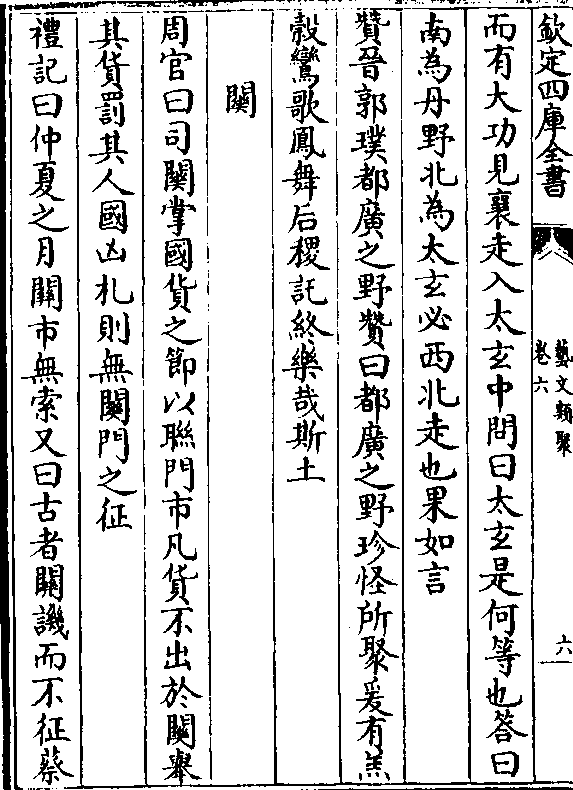 欽定四庫全書
藝文類聚
卷六
六
而有大功見襄走入太玄中問曰太玄是何等也答曰
南為丹野北為太玄必西北走也果如言
贊晉郭璞都廣之野贊曰都廣之野珍怪所聚爰有羔
穀鸞歌鳳舞后稷託終樂哉斯土
關
周官曰司關掌國貨之節以聯門市凡貨不出於關舉
其貨罰其人國凶札則無關門之征
禮記曰仲夏之月關市無索又曰古者關譏而不征蔡